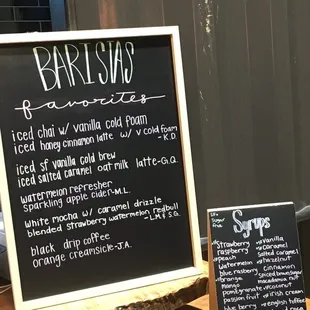 BARISTAS
favorites
iced chai w/ vanilla cold foam
iced honey cinnamon latte w/ v cold foam
-K.D.
iced sf vanilla cold brew
iced salted caramel oat milk latte-G.Q.
watermelon refresher
sparkling apple cider-M.L.
white mocha w/ caramel drizzle
blended strawberry watermelon redbull
-L.M & S.G.
black drip coffee
orange creamsicle-J.A.
Syrups
strawberry
raspberry
peach
watermelon
blue raspberry
orange
mango
pomegranate
passion fruit
blue berry
vanilla
caramel
salted caramel
hazelnut
cinnamon
macadamia nut
coconut
irish cream
english toffee